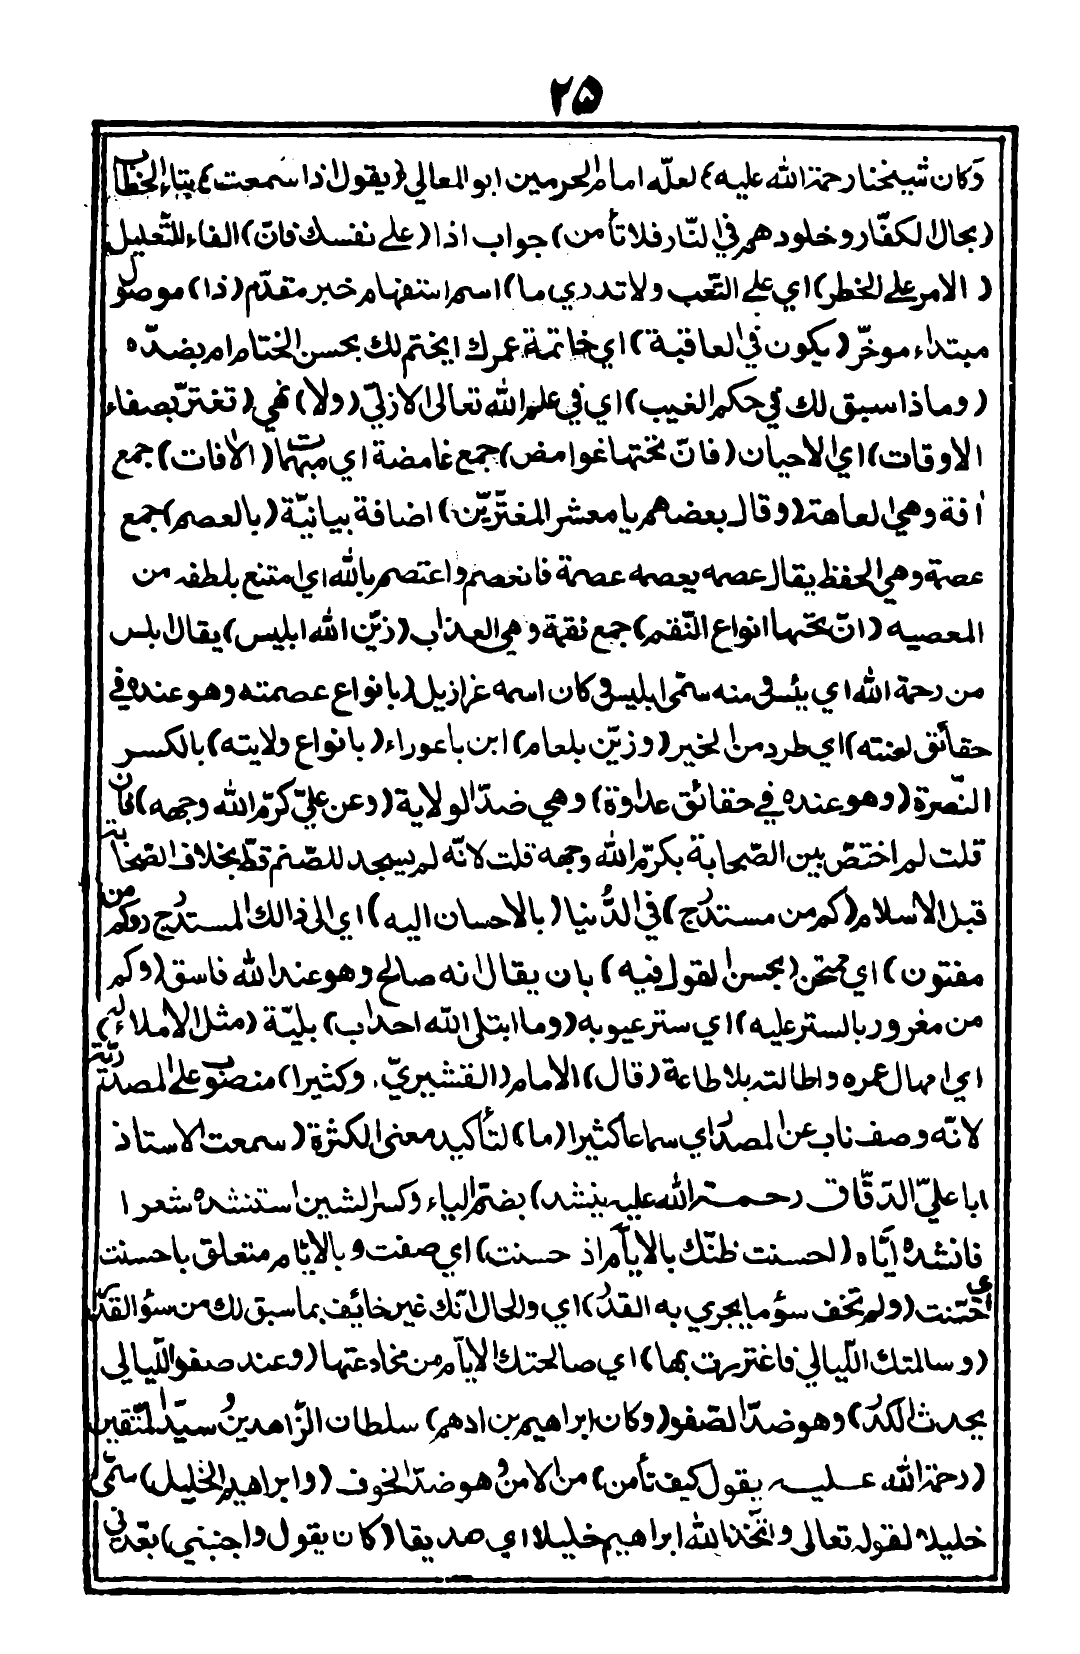 ٢٥
وكان شيخنا رحمة الله عليه) لعلّه امام الحرمين ابو المعالي (يقول اذا سمعت) بتاء الخطاب
(بحال الكفّار وخلودهم في النّار فلا تأمن) جواب اذا (على نفسك فانّ) الفاء للتّعليل
(الامر على الخطر) اي على التّعب ولا تدري ما) اسم استفهام خبر مقدّم (ذا) موصول
مبتداء موخّر (يكون في العاقبة) اي خاتمة عمرك ايختم لك بحسن الختام ام بضدّه
(وماذا سبق لك في حكم الغيب) اي في علم الله تعالى الازليّ (ولا) نهي (تغترّ بصفاء
الاوقات) اي الاحيان (فانّ تحتها غوامض) جمع غامضة اي مبهمات (الآفات) جمع
اٰفة وهي العاهة (وقال بعضهم يا معشر المغترّين) اضافة بيانيّة (بالعصم) جمع
عصمة وهي الحفظ يقال عصمه يعصمه عصمة فانعصم واعتصم بالله اي امتنع بلطفه من
المعصيه (انّ تحتها انواع النّقم) جمع نقمة وهي العذاب (زيّن الله ابليس) يقال ابلس
من رحمة الله اي يئس ومنه سمّي ابليس وكان اسمه عزازيل (بانواع عصمته وهو عنده في
حقائق لعنته) اي طرد من الخير (وزيّن بلعام) ابن باعوراء (بانواع ولايته) بالكسر
النّصرة (وهو عنده في حقائق عداوة) وهي ضدّ الولاية (وعن عليّ كرّم الله وجهه) فان
قلت لم اختصّ بين الصّحابة بكرّم الله وجهه قلت لانّه لم يسجد للصّنم قطّ بخلاف الصّحابة
قبل الاسلام (كم من مستدرج) في الدّنيا (بالاحسان اليه) اي الى ذالك المستدرج (وكم من
مفتون) اي ممتحن (بحسن القول فيه) بان يقال انه صالح وهو عند الله فاسق (وكم
من مغرور بالستر عليه) اي ستر عيوبه (وما ابتلى الله احدا ب) بليّة (مثل الاملاء له)
اي امهال عمره واطالته بلا طاعة (قال) الامام (القشيريّ، وكثيرا) منصوب على المصدريّة
لانّه وصف ناب عن المصدر اي سماعا كثيرا (ما) لتأكيد معنى الكثرة (سمعت الاستاذ
ابا عليّ الدّقّاق رحمة الله عليه ينشد) بضمّ الياء وكسر الشين استنشده شعرا
فانشده ايّاه (احسنت ظنّك بالايّام اذ حسنت) اي صفت وبالايّام متعلق باحسنت
اي حسّنت (ولم تخف سؤ ما يجري به القدر) اي والحال انّك غير خائف بما سبق لك من سؤ القدر
(وسالمتك اللّيالي فاغتررت بها) اي صالحتك الايّام من مخادعتها (وعند صفو اللّيالي
يحدث الكدر) وهو ضدّ الصّفو (وكان ابراهيم بن ادهم) سلطان الزّاهدين وسيّد المتّقين
(رحمة الله عليه يقول كيف تأمن) من الامن وهو ضدّ الخوف (وابراهيم الخليل) سمّي
خليلا لقوله تعالى واتّخذ الله ابراهيم خليلا اي صديقا (كان يقول واجنبني) بعّدني